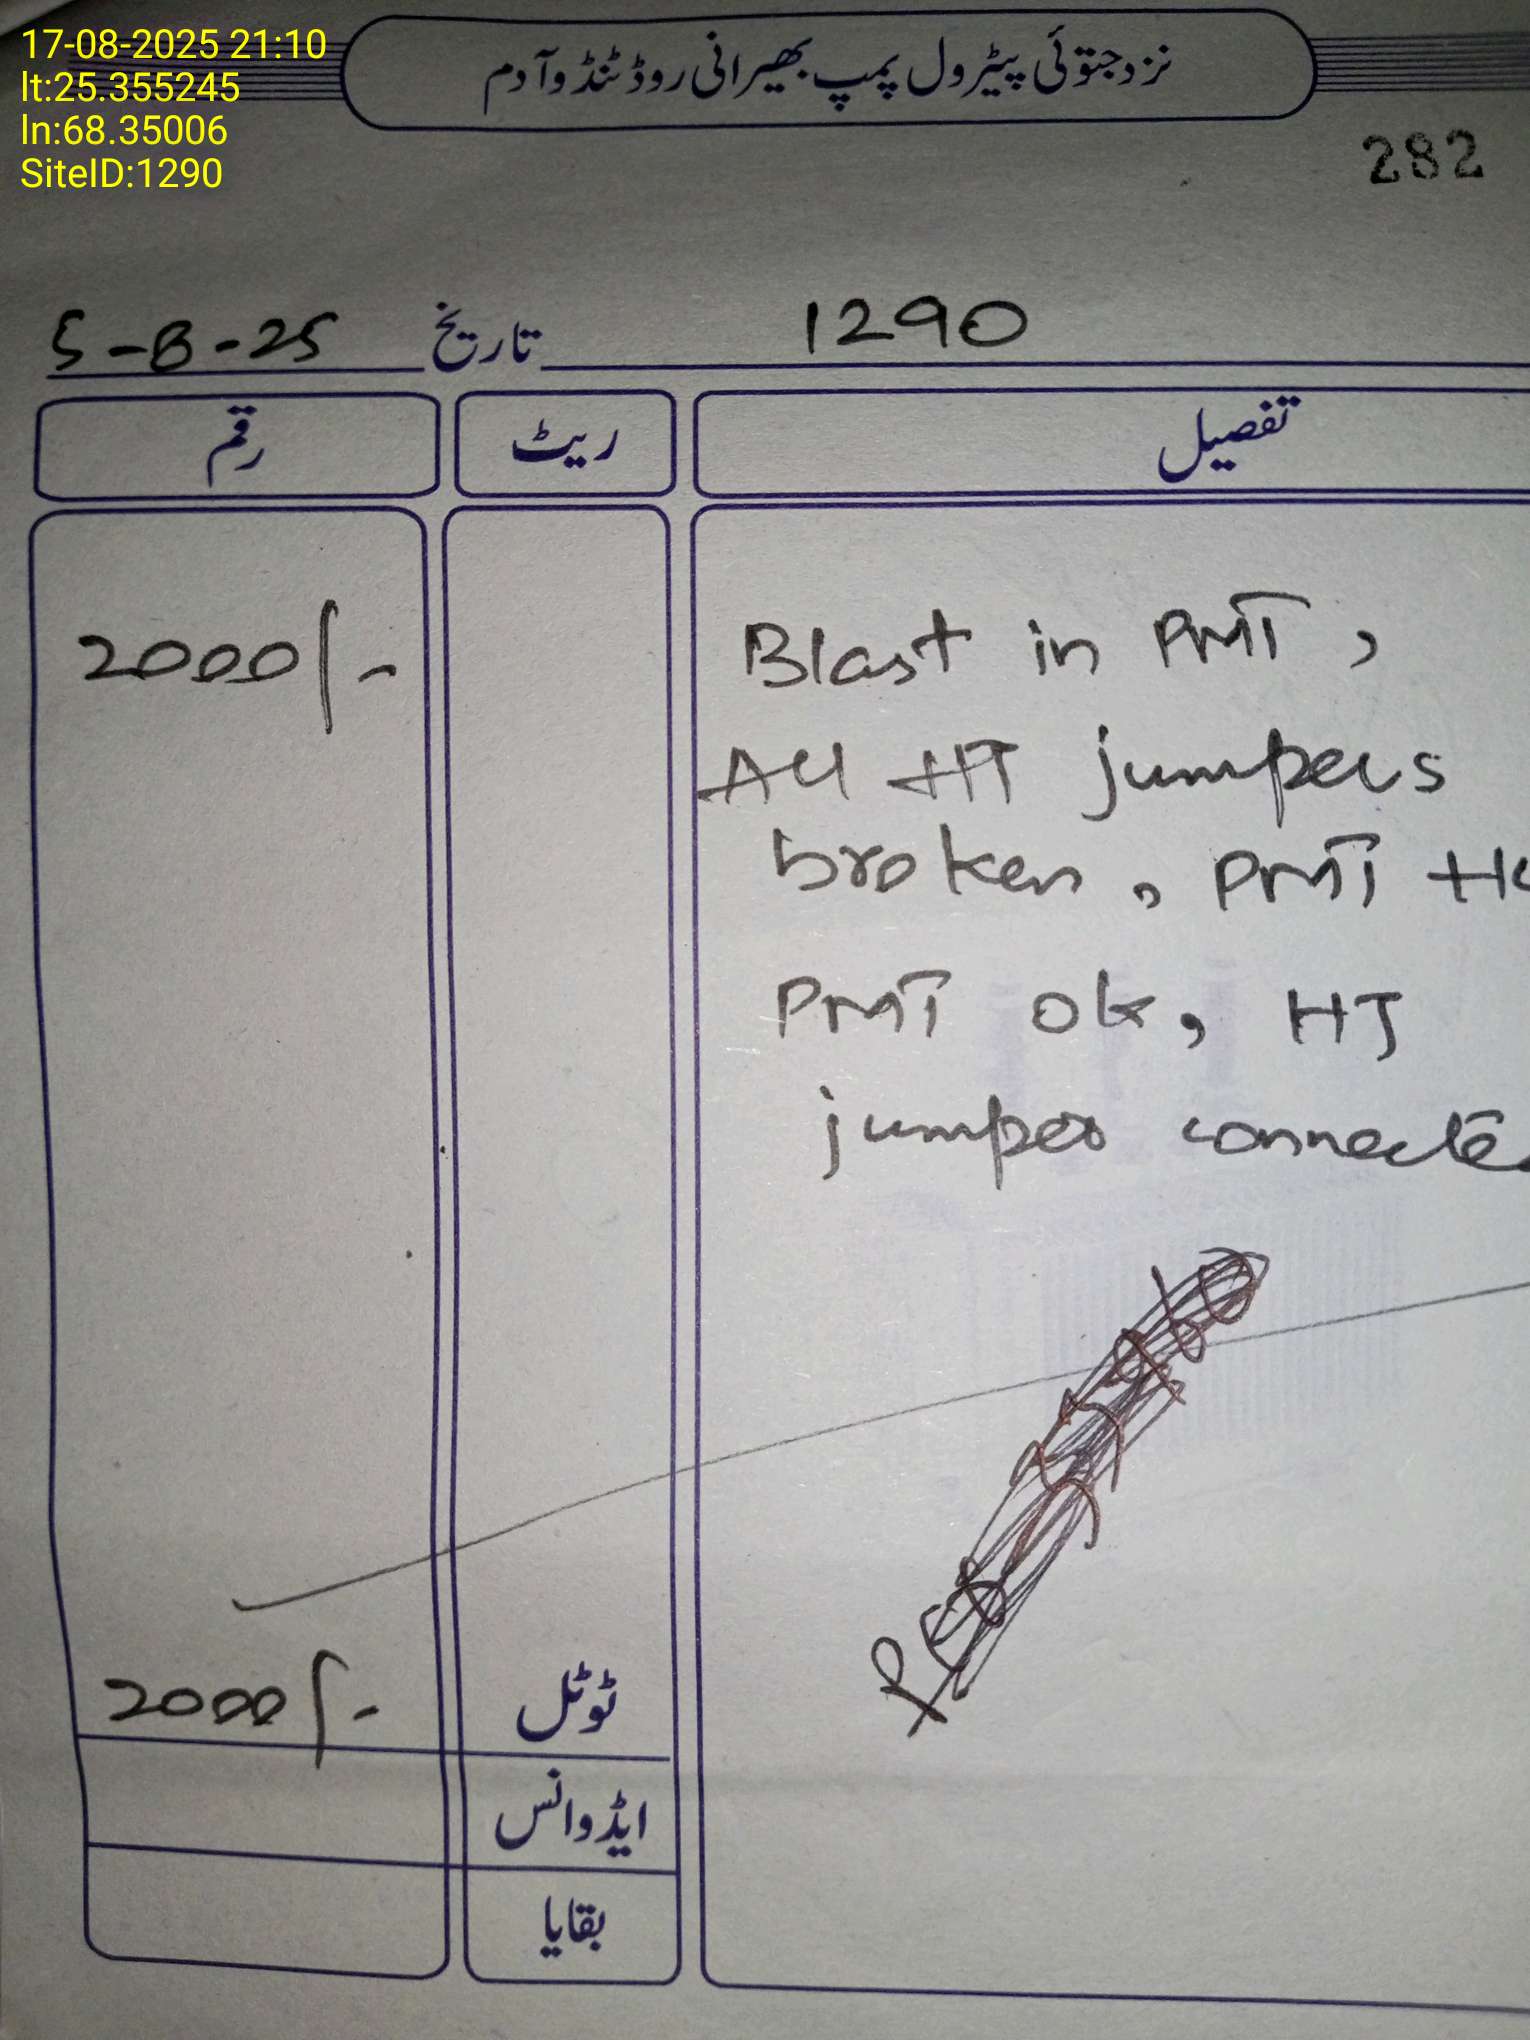 17-08-2025 21:10
lt:25.355245
ln:68.35006
SiteID:1290
نزد جتوئی پیٹرول پمپ بھیرانی روڈ ٹنڈوآدم
282
1290
تاریخ 5-8-25
تفصیل ریٹ رقم
Blast in PMT, 2000/-
All HT jumpers
broken, PMT
PMT ok, HT
jumper connected
ٹوٹل 2000/-
ایڈوانس
بقایا